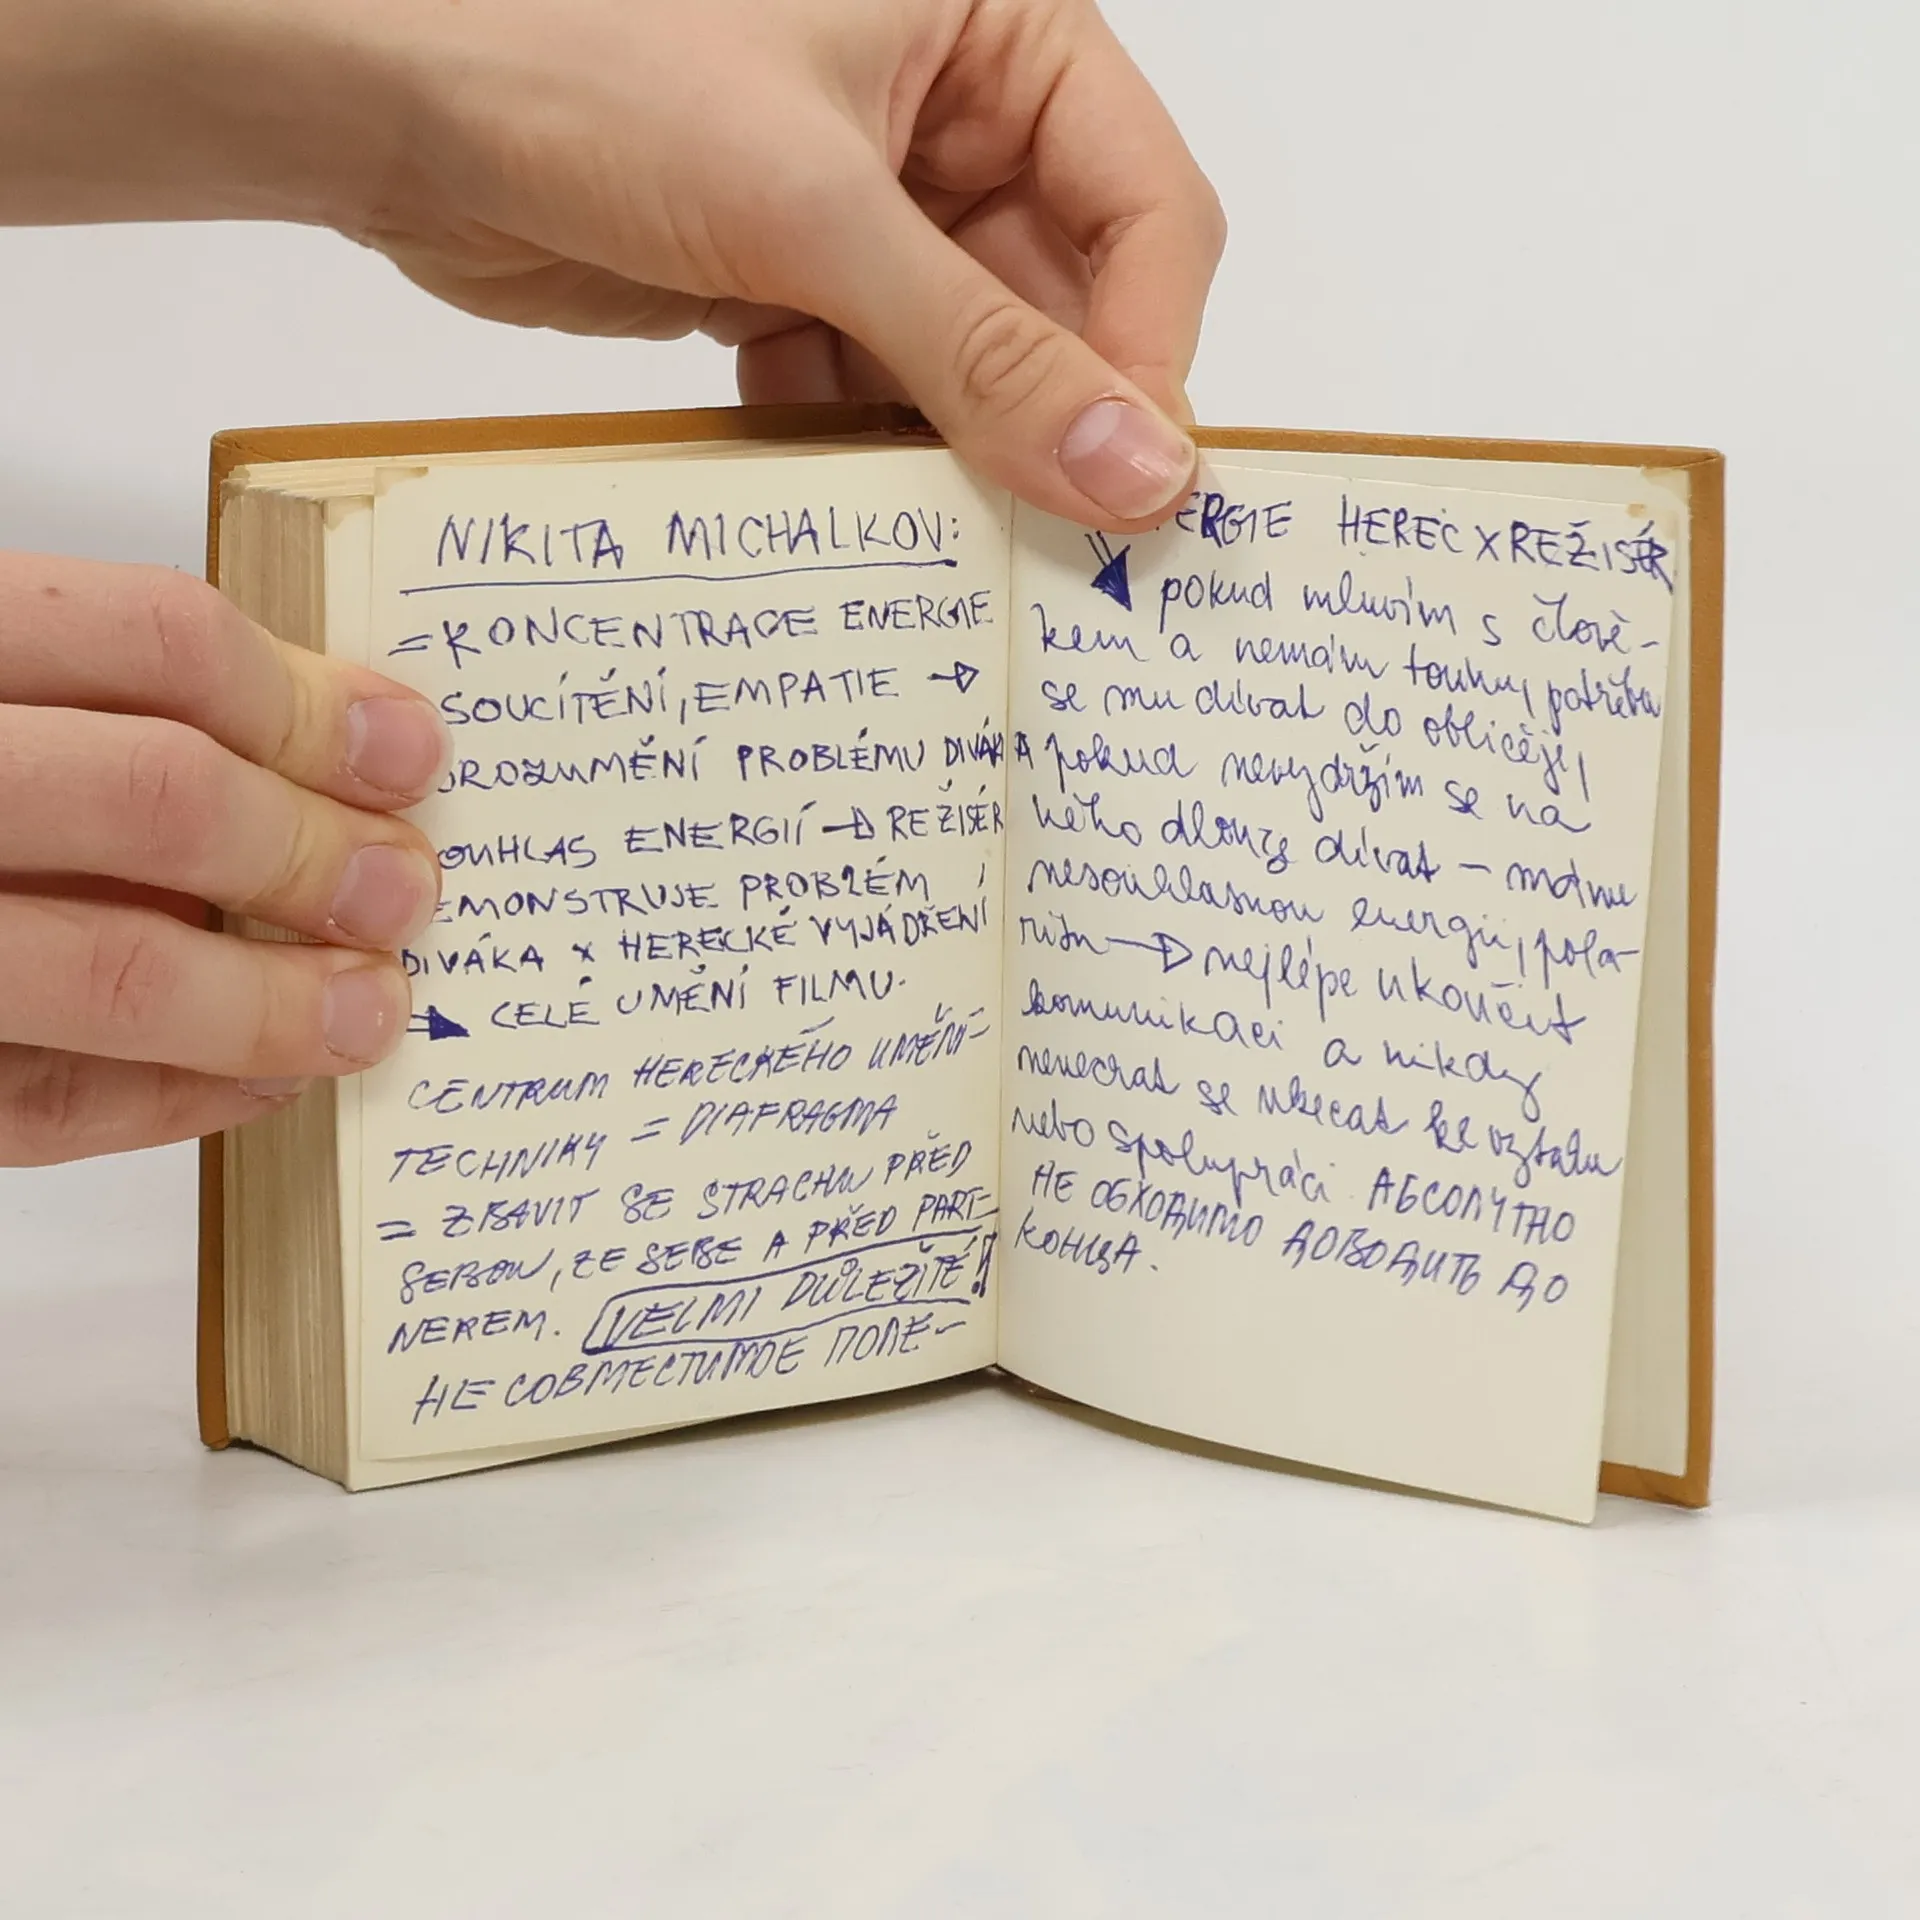 NIKITA MICHALKOV:
= KONCENTRACE ENERGIE
SOUCÍTĚNÍ, EMPATIE →
ROZUMĚNÍ PROBLÉMU DIVÁKA
OUHLAS ENERGIÍ → REŽISÉR
EMONSTRUJE PROBLÉM
DIVÁKA x HERECKÉ VYJÁDŘENÍ
→ CELÉ UMĚNÍ FILMU.
CENTRUM HERECKÉHO UMĚNÍ =
TECHNIKY = DIAFRAGMA
= ZBAVIT SE STRACHU PŘED
SEBOU, ZE SEBE A PŘED PART-
NEREM. VELMI DŮLEŽITÉ!
НЕСОВМЕСТИМОЕ ПОЛЕ -
ERGIE HEREC X REŽISÉR
pokud mluvím s člově-
kem a nemám touhu, potřebu
se mu dívat do obličeje,
pokud nevydržím se na
něho dlouze dívat - máme
nesouhlasnou energii, pola-
ritu → nejlépe ukončit
komunikaci a nikdy
nenechat se ukecat ke vztahu
nebo spolupráci. АБСОЛЮТНО
НЕ ОБХОДИМО ДОВОДИТЬ ДО
КОНЦА.